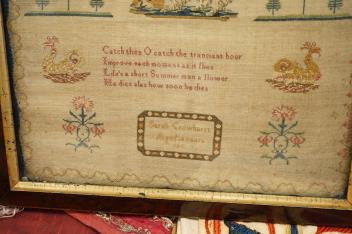 Catch then O catch the transiant hour
Improve each moment as it flies
Life's a short Summer man a flower
He dies alas how soon he dies
Sarah Crowhurst
Aged
years